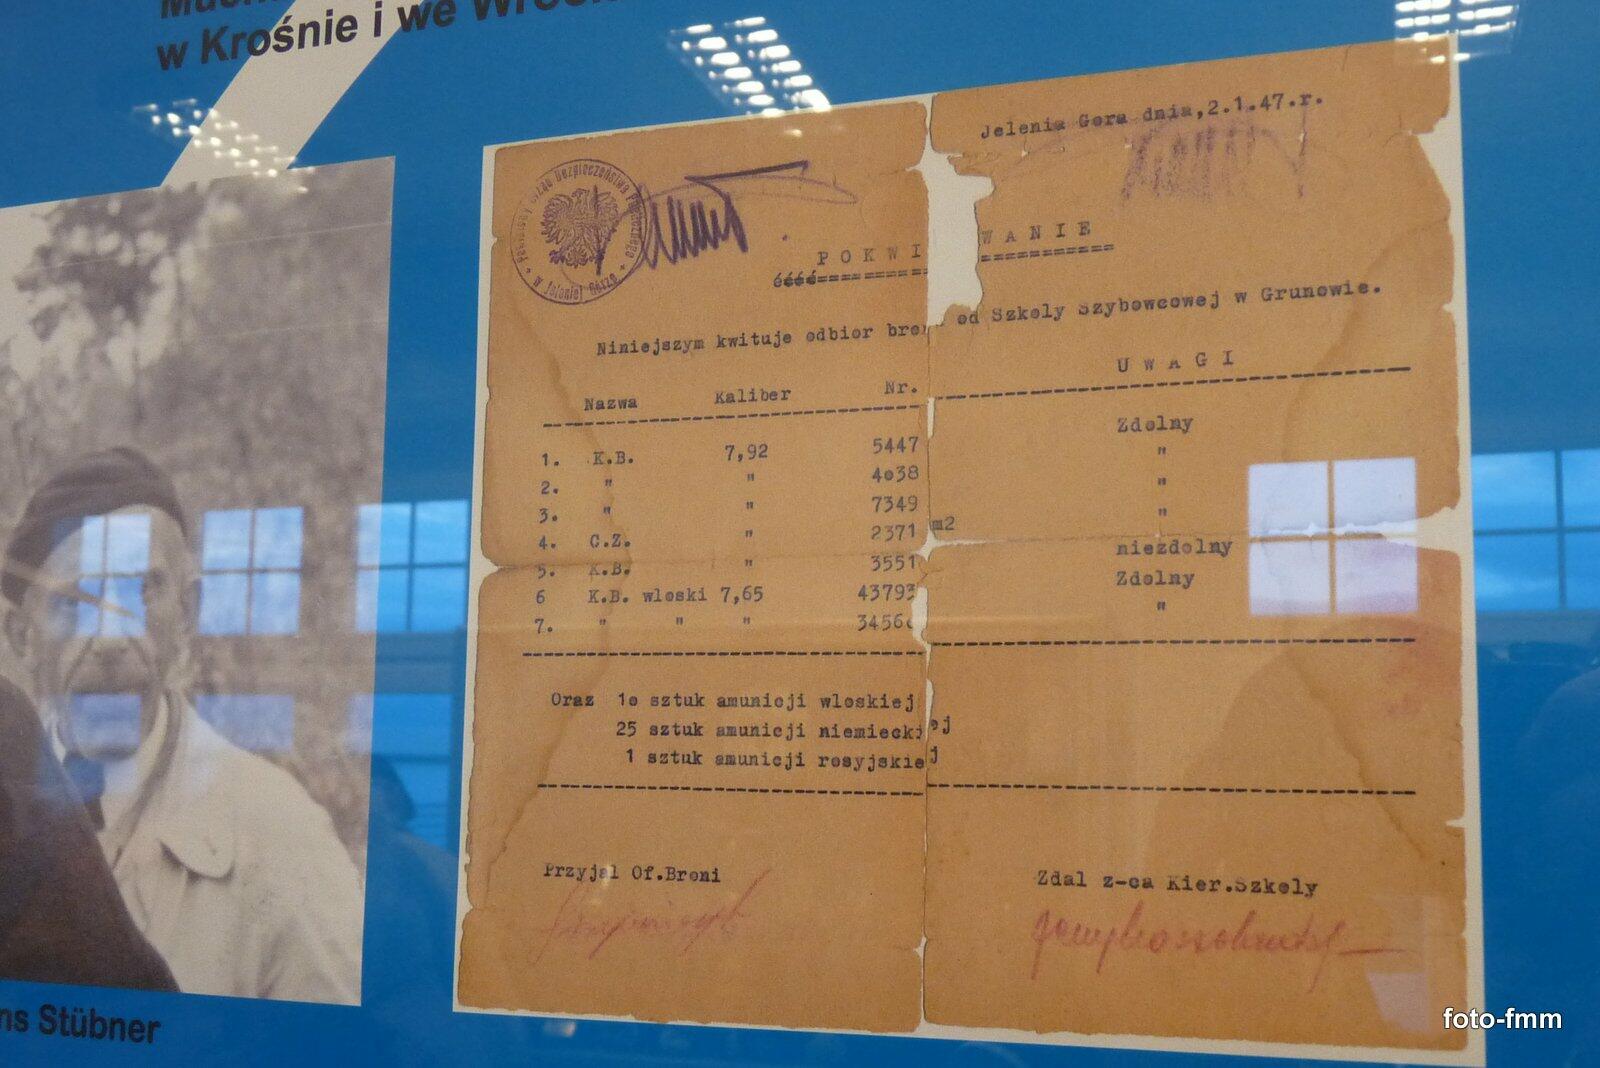 w Krośnie i we
Jelenia Gora dnia,2.1.47.r.
Urząd Bezpieczeństwa Publicznego
w Jeleniej Górze
P O K W I W A N I E
éééé================
Niniejszym kwituje odbior od Szkoly Szybowcowej w Grunowie.
Nazwa Kaliber Nr. U W A G I
1. K.B. 7,92 5447 Zdolny
2. " " 4o38 "
3. " " 7349 "
4. C.Z. " 2371 m2 "
5. K.B. " 3551 niezdolny
6 K.B. wloski 7,65 43793 Zdolny
7. " " " "
Oraz 1o sztuk amunicji wloskiej
25 sztuk amunicji niemieckiej
1 sztuk amunicji rosyjskiej
Przyjal Of.Broni Zdal z-ca Kier.Szkoly
Stübner
foto-fmm